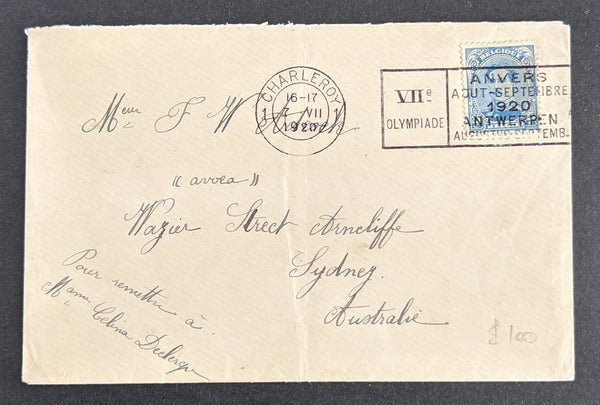 BELGIQUE
CHARLEROY
1 16-17 1
7 VII
1920
VIIe
OLYMPIADE
ANVERS
AOUT-SEPTEMBRE
1920
ANTWERPEN
AUGUSTUS-SEPTEMB.
Mr F W
« avoca »
Wazier Street Arncliffe
Sydney.
Australie
Pour remettre à
Mame Celina Declercq
$100